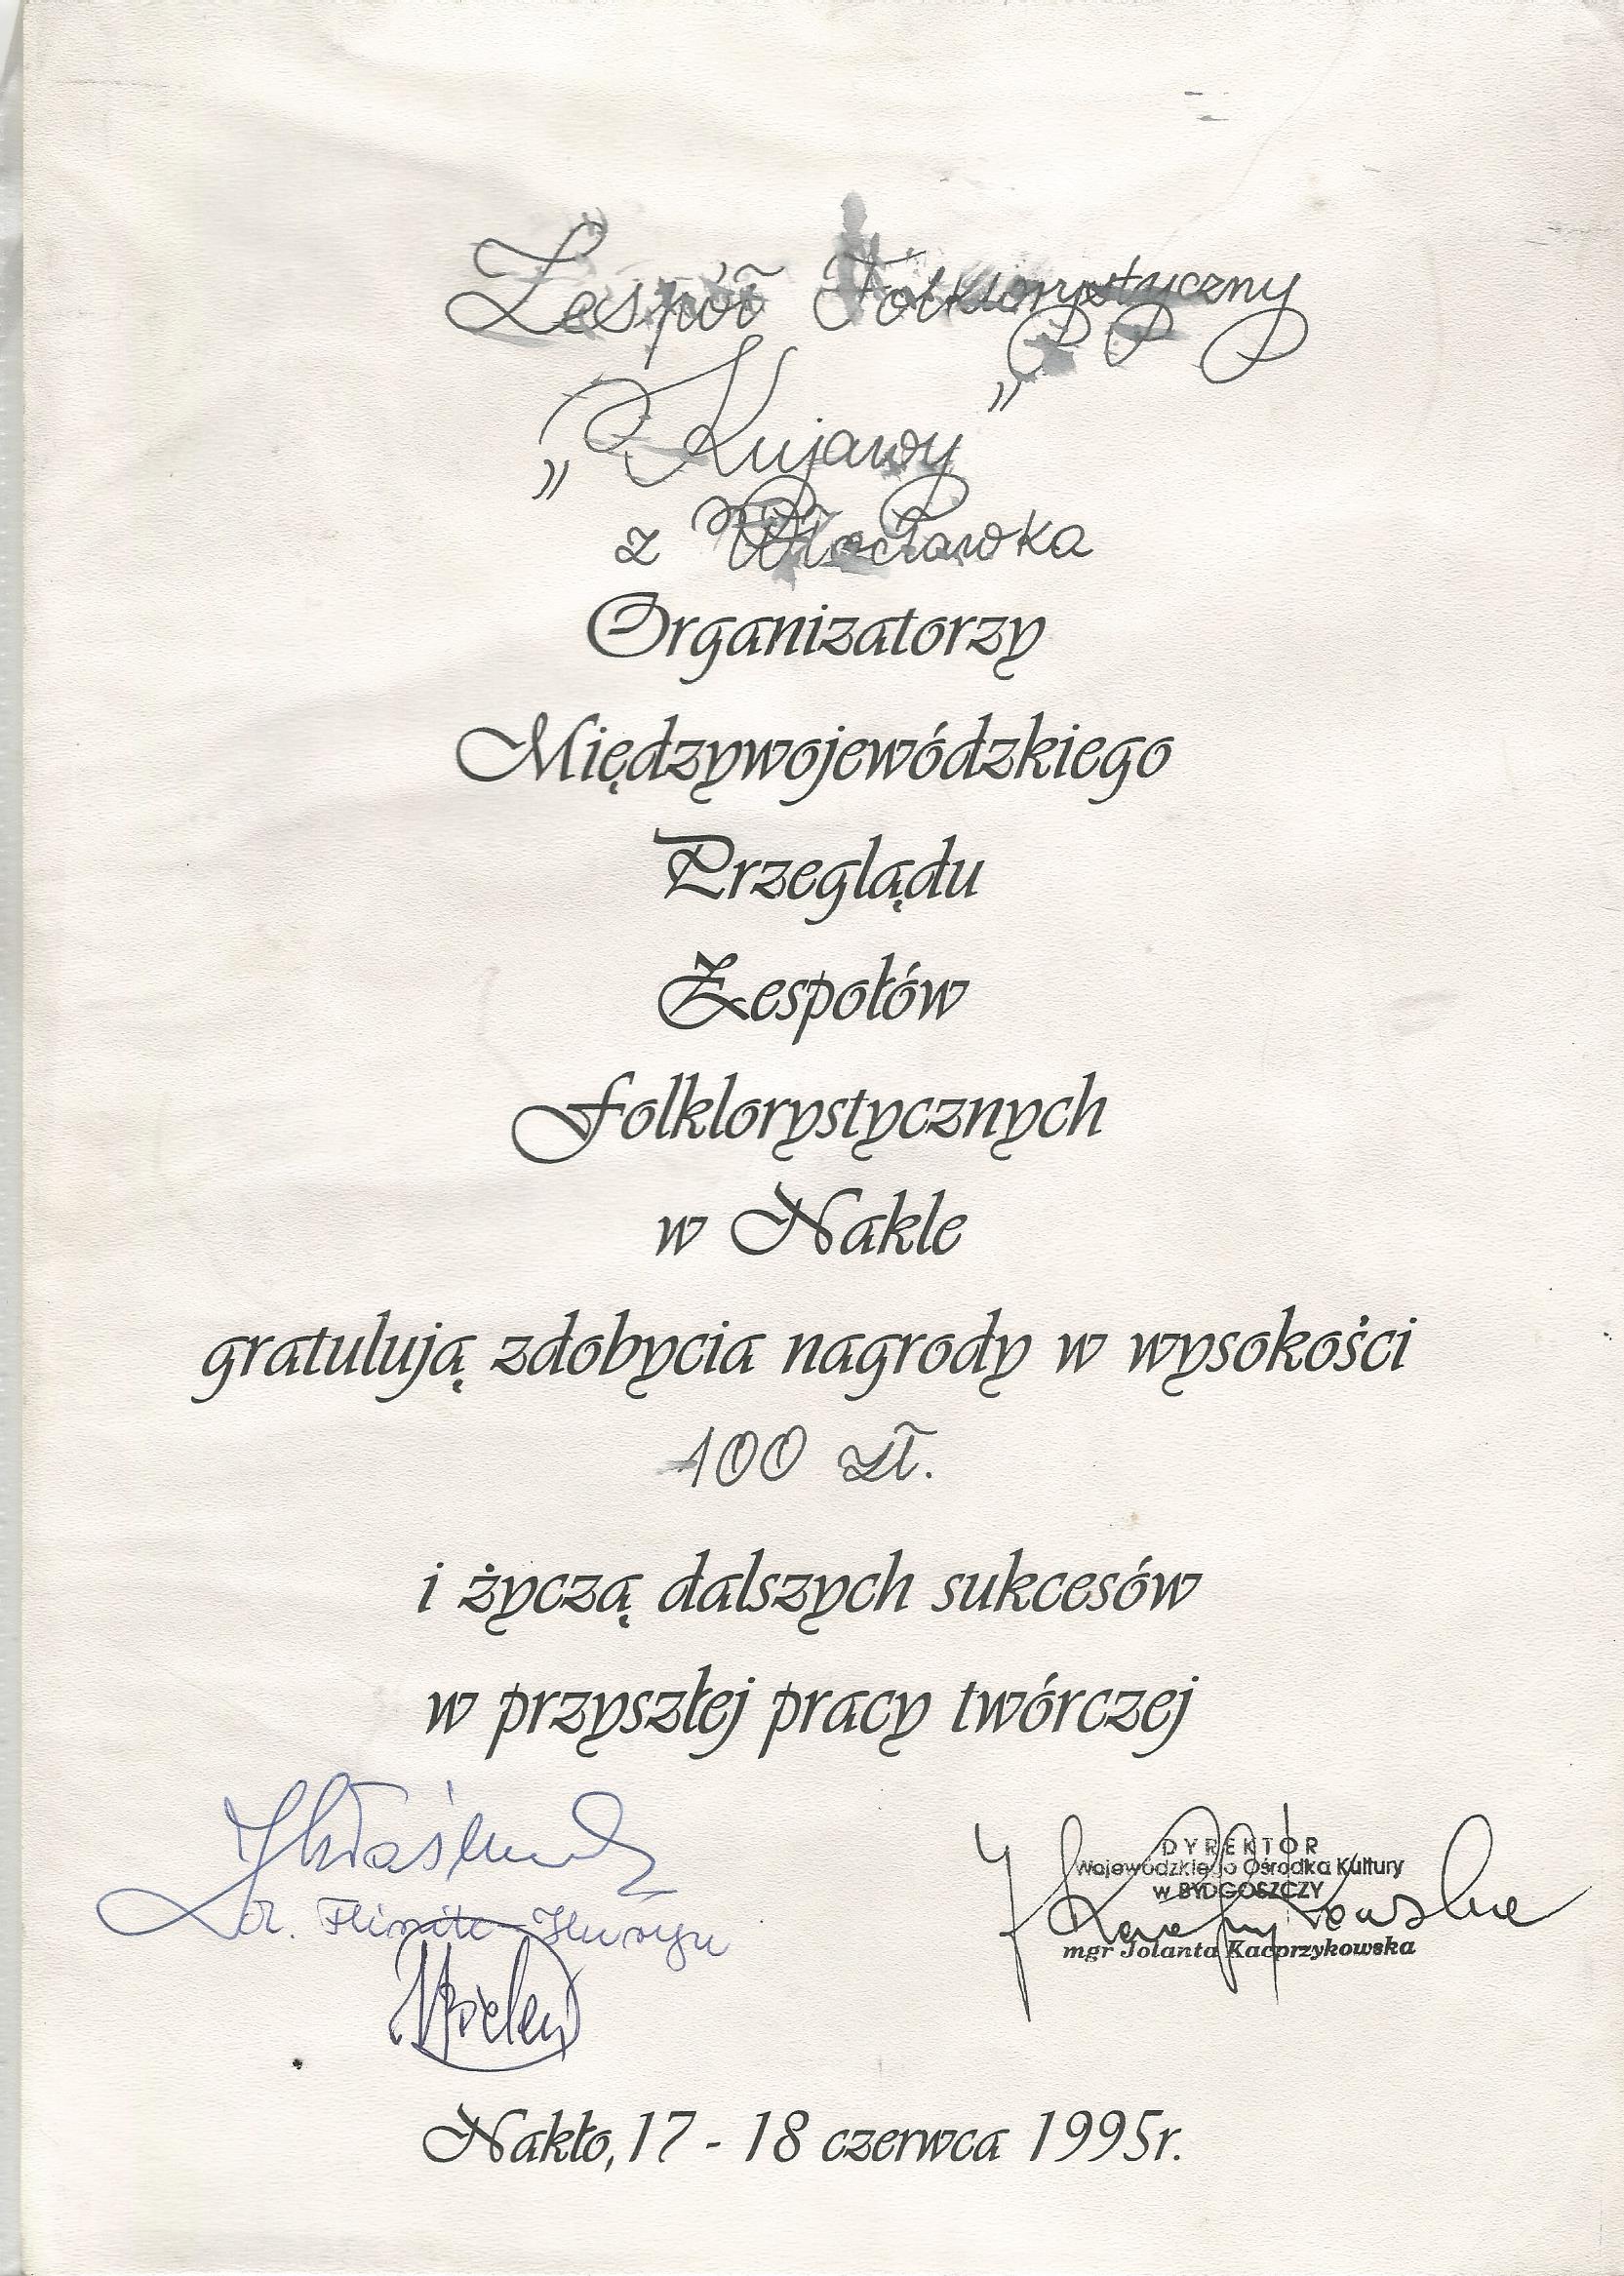 Zespół Folklorystyczny
„Kujawy”
z Włocławka
Organizatorzy
Międzywojewódzkiego
Przeglądu
Zespołów
Folklorystycznych
w Nakle
gratulują zdobycia nagrody w wysokości
100 zł.
i życzą dalszych sukcesów
w przyszłej pracy twórczej
DYREKTOR
Wojewódzkiego Ośrodka Kultury
w BYDGOSZCZY
mgr Jolanta Kacprzykowska
Nakło, 17 - 18 czerwca 1995r.